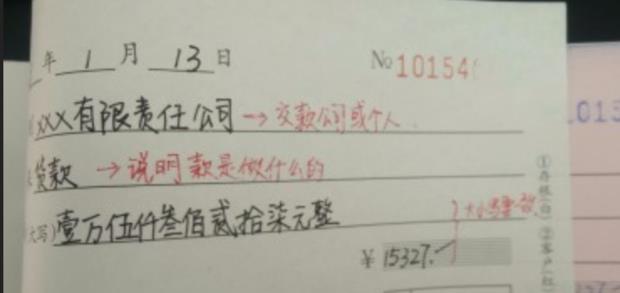 年 1 月 13 日 No 10154
XXX有限责任公司 → 交款公司或个人
货款 → 说明款是做什么的
大写)壹万伍仟叁佰贰拾柒元整
大小写要一致
¥ 15327.-
①存根(白) ②客户(红
015